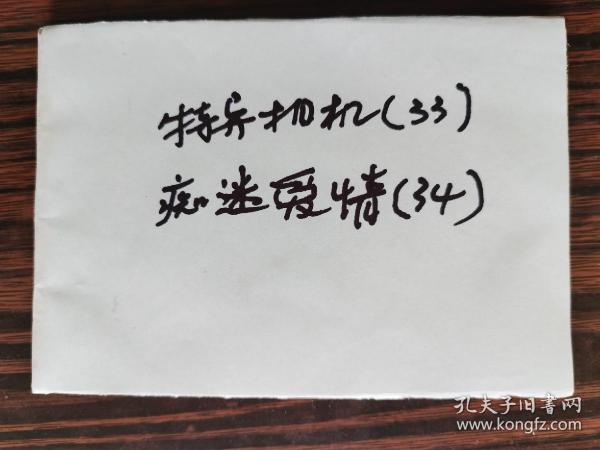 特异相机(33)
痴迷爱情(34)
孔夫子旧書网
www.kongfz.com